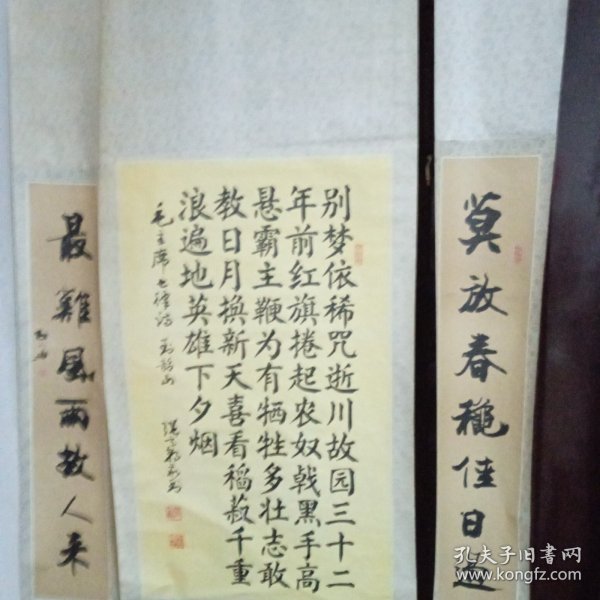 莫放春穠佳日過
别梦依稀咒逝川故园三十二
年前红旗捲起农奴戟黑手高
悬霸主鞭为有牺牲多壮志敢
教日月换新天喜看稻菽千重
浪遍地英雄下夕烟
毛主席七律诗
最難風雨故人来
孔夫子旧书网
www.kongfz.com